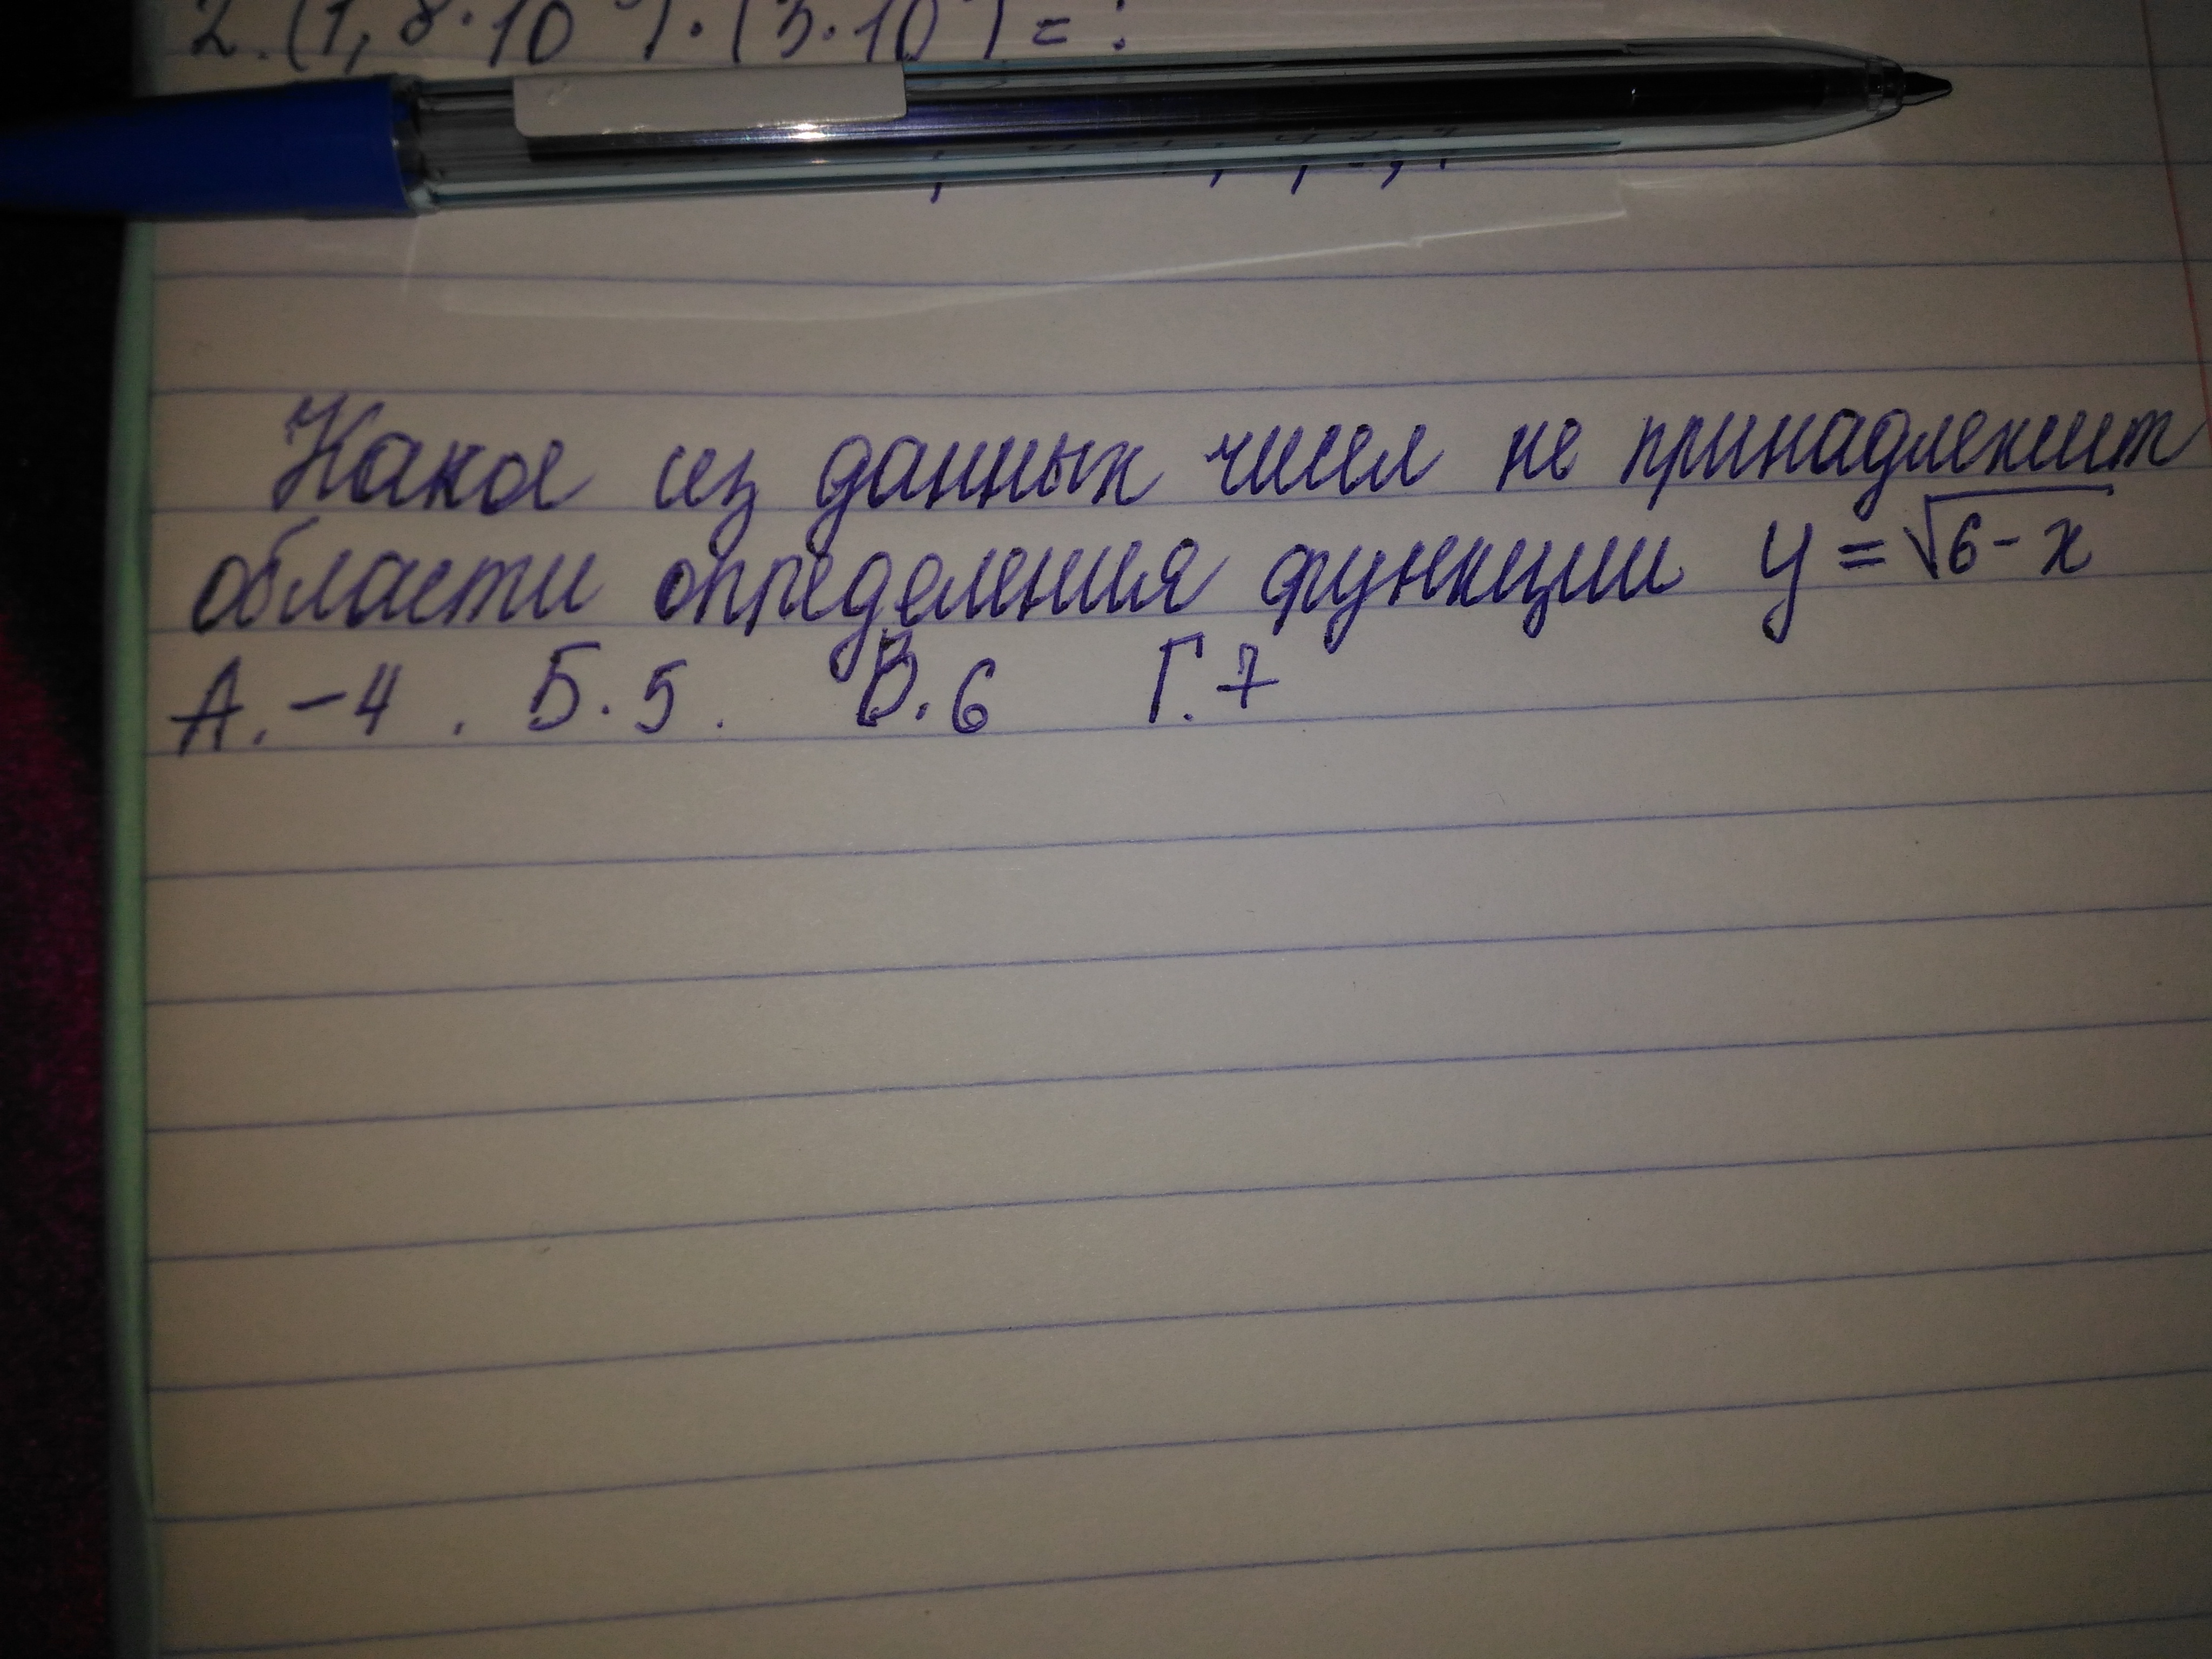 2. (1,8·10 ) · (3·10 ) = :
Какое из данных чисел не принадлежит
области определения функции y = √6-x
А. -4 . Б. 5 . В. 6 Г. 7